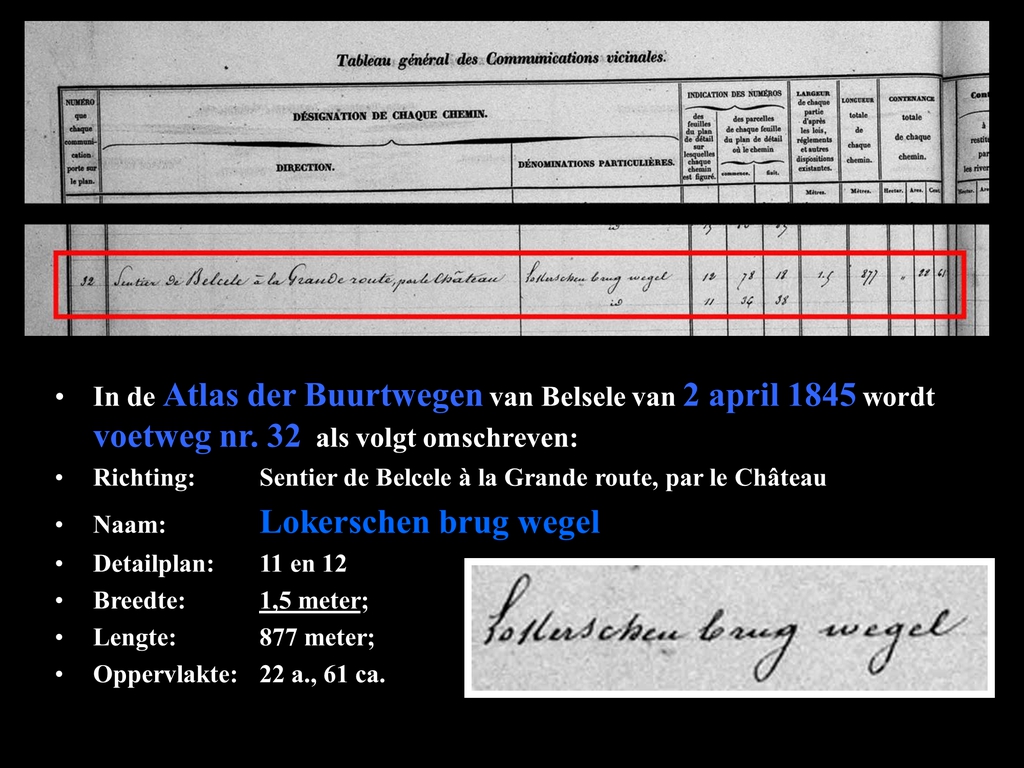 Tableau général des Communications vicinales.
NUMÉRO
que
chaque
communi-
cation
porte sur
le plan.
DÉSIGNATION DE CHAQUE CHEMIN.
DIRECTION.
DÉNOMINATIONS PARTICULIÈRES.
INDICATION DES NUMÉROS
des
feuilles
du plan
de détail
sur
lesquelles
chaque
chemin
est figuré.
des parcelles
de chaque feuille
du plan de détail
où le chemin
commence.
finit.
LARGEUR
de chaque
partie
d'après
les lois,
réglements
et autres
dispositions
existantes.
Mètres.
LONGUEUR
totale
de
chaque
chemin.
Mètres.
CONTENANCE
totale
de chaque
chemin.
Hectar. Ares. Cent.
Cont
à
restit
par
les river
Hectar. Are
id
32 Sentier de Belcele à la Grande route, par le Château Lokerschen brug wegel 12 78 18 1.5 877 " 22 61
id 11 34 38
• In de Atlas der Buurtwegen van Belsele van 2 april 1845 wordt
voetweg nr. 32 als volgt omschreven:
• Richting: Sentier de Belcele à la Grande route, par le Château
• Naam: Lokerschen brug wegel
• Detailplan: 11 en 12
• Breedte: 1,5 meter;
• Lengte: 877 meter;
• Oppervlakte: 22 a., 61 ca.
Lokerschen brug wegel